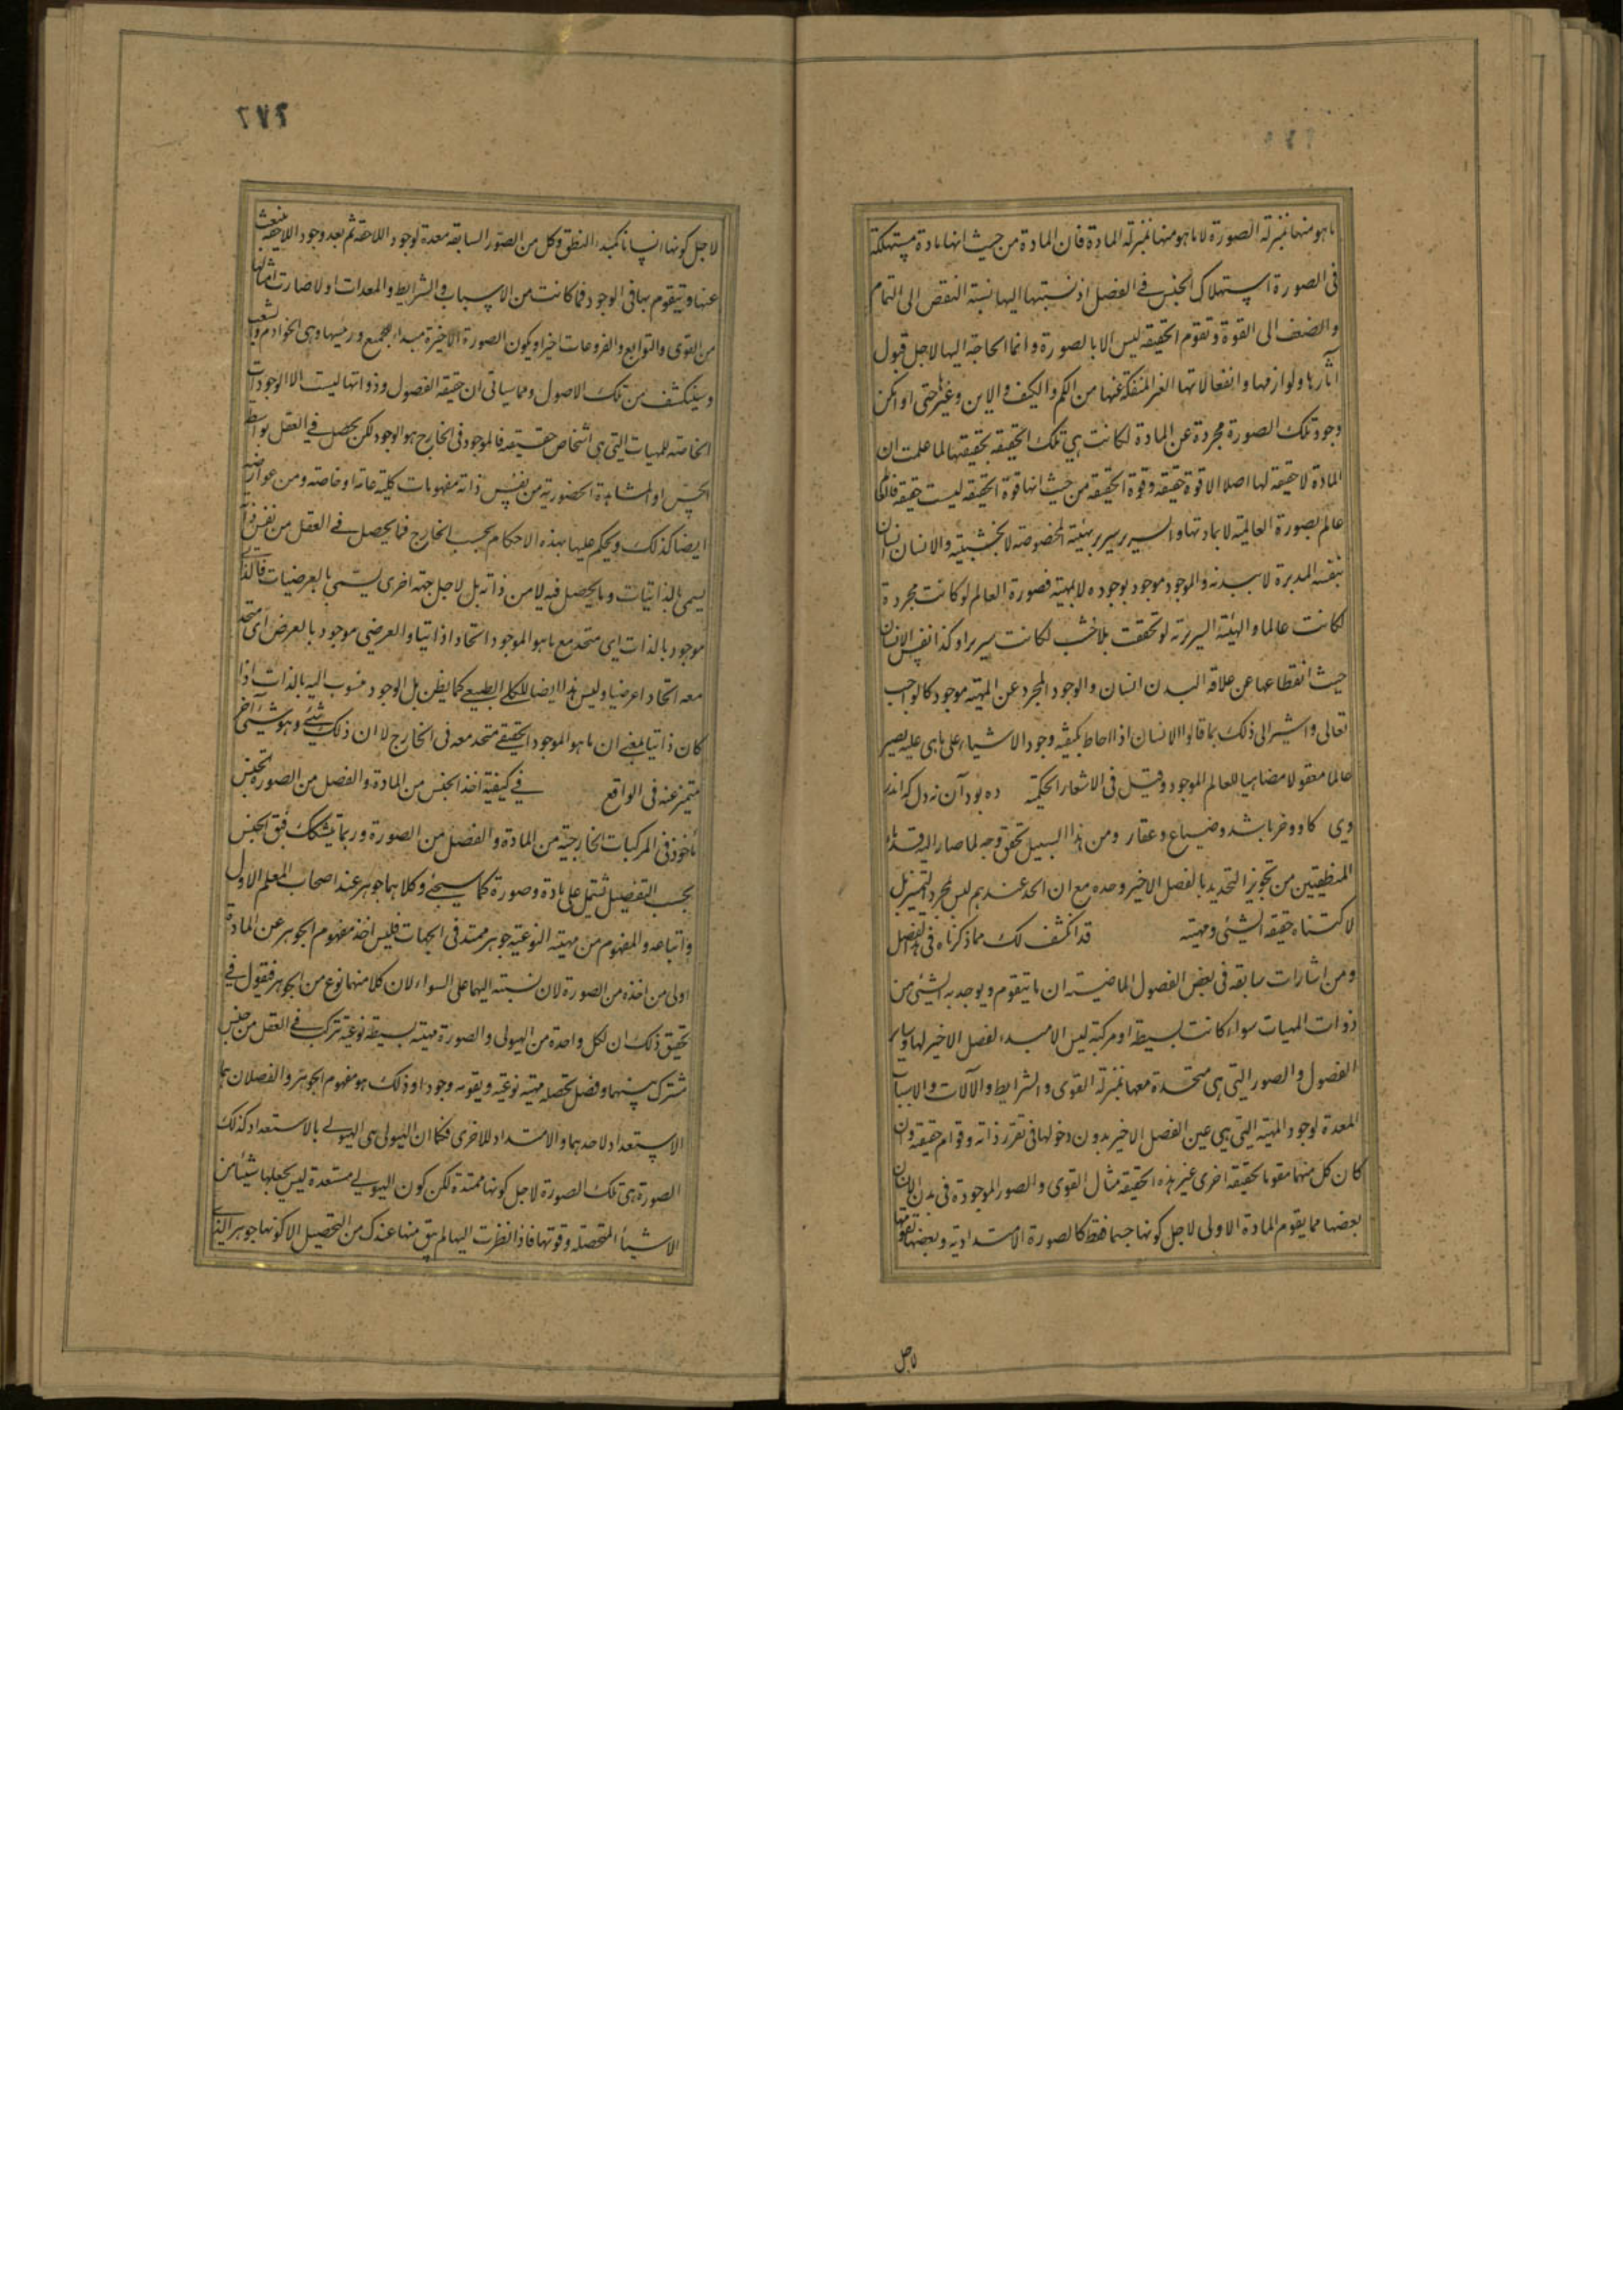 ما هو منها بمنزلة الصورة لا ما هو منها بمنزلة المادة فان المادة من حيث انها مادة مستهلكة
فى الصورة استهلاك الجنس فى الفصل اذ نسبتها اليها نسبة النقص الى التمام
والضعف الى القوة وتقوم الحقيقة ليس الا بالصورة وانما الحاجة اليها لاجل قبول
آثارها ولوازمها وانفعالاتها الغير المنفكة عنها من الكم والكيف والاين وغيرها حتى لو امكن
وجود تلك الصورة مجردة عن المادة لكانت هى تلك الحقيقة بحقيقتها لما علمت ان
المادة لا حقيقة لها اصلا الا قوة حقيقة وقوة الحقيقة من حيث انها قوة الحقيقة ليست حقيقة فالعالم
عالم بصورة العالمية لا بمادتها والسرير سرير بهيئته المخصوصة لا بخشبيته والانسان انسان
بنفسه المدبرة لا ببدنه والموجود موجود بوجوده لا بمهيته فصورة العالم لو كانت مجردة
لكانت عالما والهيئة السريرية لو تحققت بلا خشب لكانت سريرا وكذا نفس الانسان
حيث انقطاعها عن علاقة البدن انسان والوجود المجرد عن المهية موجود كالواجب
تعالى واشير الى ذلك بما قالوا الانسان اذا احاط بكيفية وجود الاشياء على ما هى عليه يصير
عالما معقولا مضاهيا للعالم الموجود وقيل فى الاشعار الحكمية ده بود آن نه دل كه اندر
وى گاو و خر باشد و ضياع و عقار ومن هذا السبيل تحقق وجه لما صار اليه قدماء
المنطقيين من تجويز التحديد بالفصل الاخير وحده مع ان الحد عندهم ليس لمجرد التميز بل
لاكتناه حقيقة الشئ ومهيته قد انكشف لك مما ذكرناه فى هذا الفصل
ومن اشارات سابقة فى بعض الفصول الماضية ان ما يتقوم ويوجد به الشئ من
ذوات المهيات سواء كانت بسيطة او مركبة ليس الا مبدء الفصل الاخير لها وساير
الفصول والصور التى هى متحدة معها بمنزلة القوى والشرايط والآلات والاسباب
المعدة لوجود المهية التى هى عين الفصل الاخير بدون دخولها فى تقرر ذاته وقوام حقيقته وان
كان كل منها مقوما لحقيقة اخرى غير هذه الحقيقة مثال القوى والصور الموجودة فى بدن الانسان
بعضها مما يقوم المادة الاولى لاجل كونها جسما فقط كالصورة الامتدادية وبعضها تقومها
لاجل
٢٧٢
لاجل كونها انسانا كمبدء النطق وكل من الصور السابقة معدة لوجود اللاحقة ثم بعد وجود اللاحقة ينبعث
عنها ويتقوم بها فى الوجود فما كانت من الاسباب والشرايط والمعدات اولا صارت امثالها
من القوى والتوابع والفروعات اخيرا ويكون الصورة الاخيرة مبداء للجميع ورئيسها وهى الخوادم والشعب
وسينكشف من تلك الاصول ومما سياتى ان حقيقة الفصول وذواتها ليست الا الوجودات
الخاصة للمهيات التى هى اشخاص حقيقية فالموجود فى الخارج هو الوجود لكن يحصل فى العقل بواسطة
الحس او المشاهدة الحضورية من نفس ذاته مفهومات كلية عامة او خاصة ومن عوارضه
ايضا كذلك ويحكم عليها بهذه الاحكام بحسب الخارج فما يحصل فى العقل من نفس ذاته
يسمى بالذاتيات وما يحصل فيه لا من ذاته بل لاجل جهة اخرى يسمى بالعرضيات فالذاتى
موجود بالذات اى متحد مع ما هو الموجود اتحادا ذاتيا والعرضى موجود بالعرض اى متحد
معه اتحادا عرضيا وليس هذا ايضا للكلى الطبيعى كما يظن بل الوجود منسوب اليه بالذات اذا
كان ذاتيا بمعنى ان ما هو الموجود الحقيقى متحد معه فى الخارج لا ان ذلك شئ وهو شئ آخر
متميز عنه فى الواقع فى كيفية اخذ الجنس من المادة والفصل من الصورة الجنس
ماخوذ فى المركبات الخارجية من المادة والفصل من الصورة وربما يتشكك فيق الجنس
بحسب التفصيل مشتمل على مادة وصورة كما سيجئ وكلاهما جوهر عند اصحاب المعلم الاول
واتباعه والمفهوم من مهيته النوعية جوهر ممتد فى الجهات فليس اخذ مفهوم الجوهر عن المادة
اولى من اخذه من الصورة لان نسبته اليهما على السواء لان كلا منهما نوع من الجوهر فيقول فى
تحقيق ذلك ان لكل واحدة من الهيولى والصورة مهية بسيطة نوعية تتركب فى العقل من جنس
مشترك بينهما وفصل تحصله مهية نوعية ويقومه وجودا وذلك هو مفهوم الجوهر والفصلان هما
الاستعداد لاحدهما والامتداد للاخرى فكما ان الهيولى هى الهيولى بالاستعداد كذلك
الصورة هى تلك الصورة لاجل كونها ممتدة لكن كون الهيولى مستعدة ليس يجعلها شيئا من
الاشياء المتحصلة وقوتها فاذا نظرت اليها لم يبق منها عندك من التحصيل الا كونها جوهرا لذى